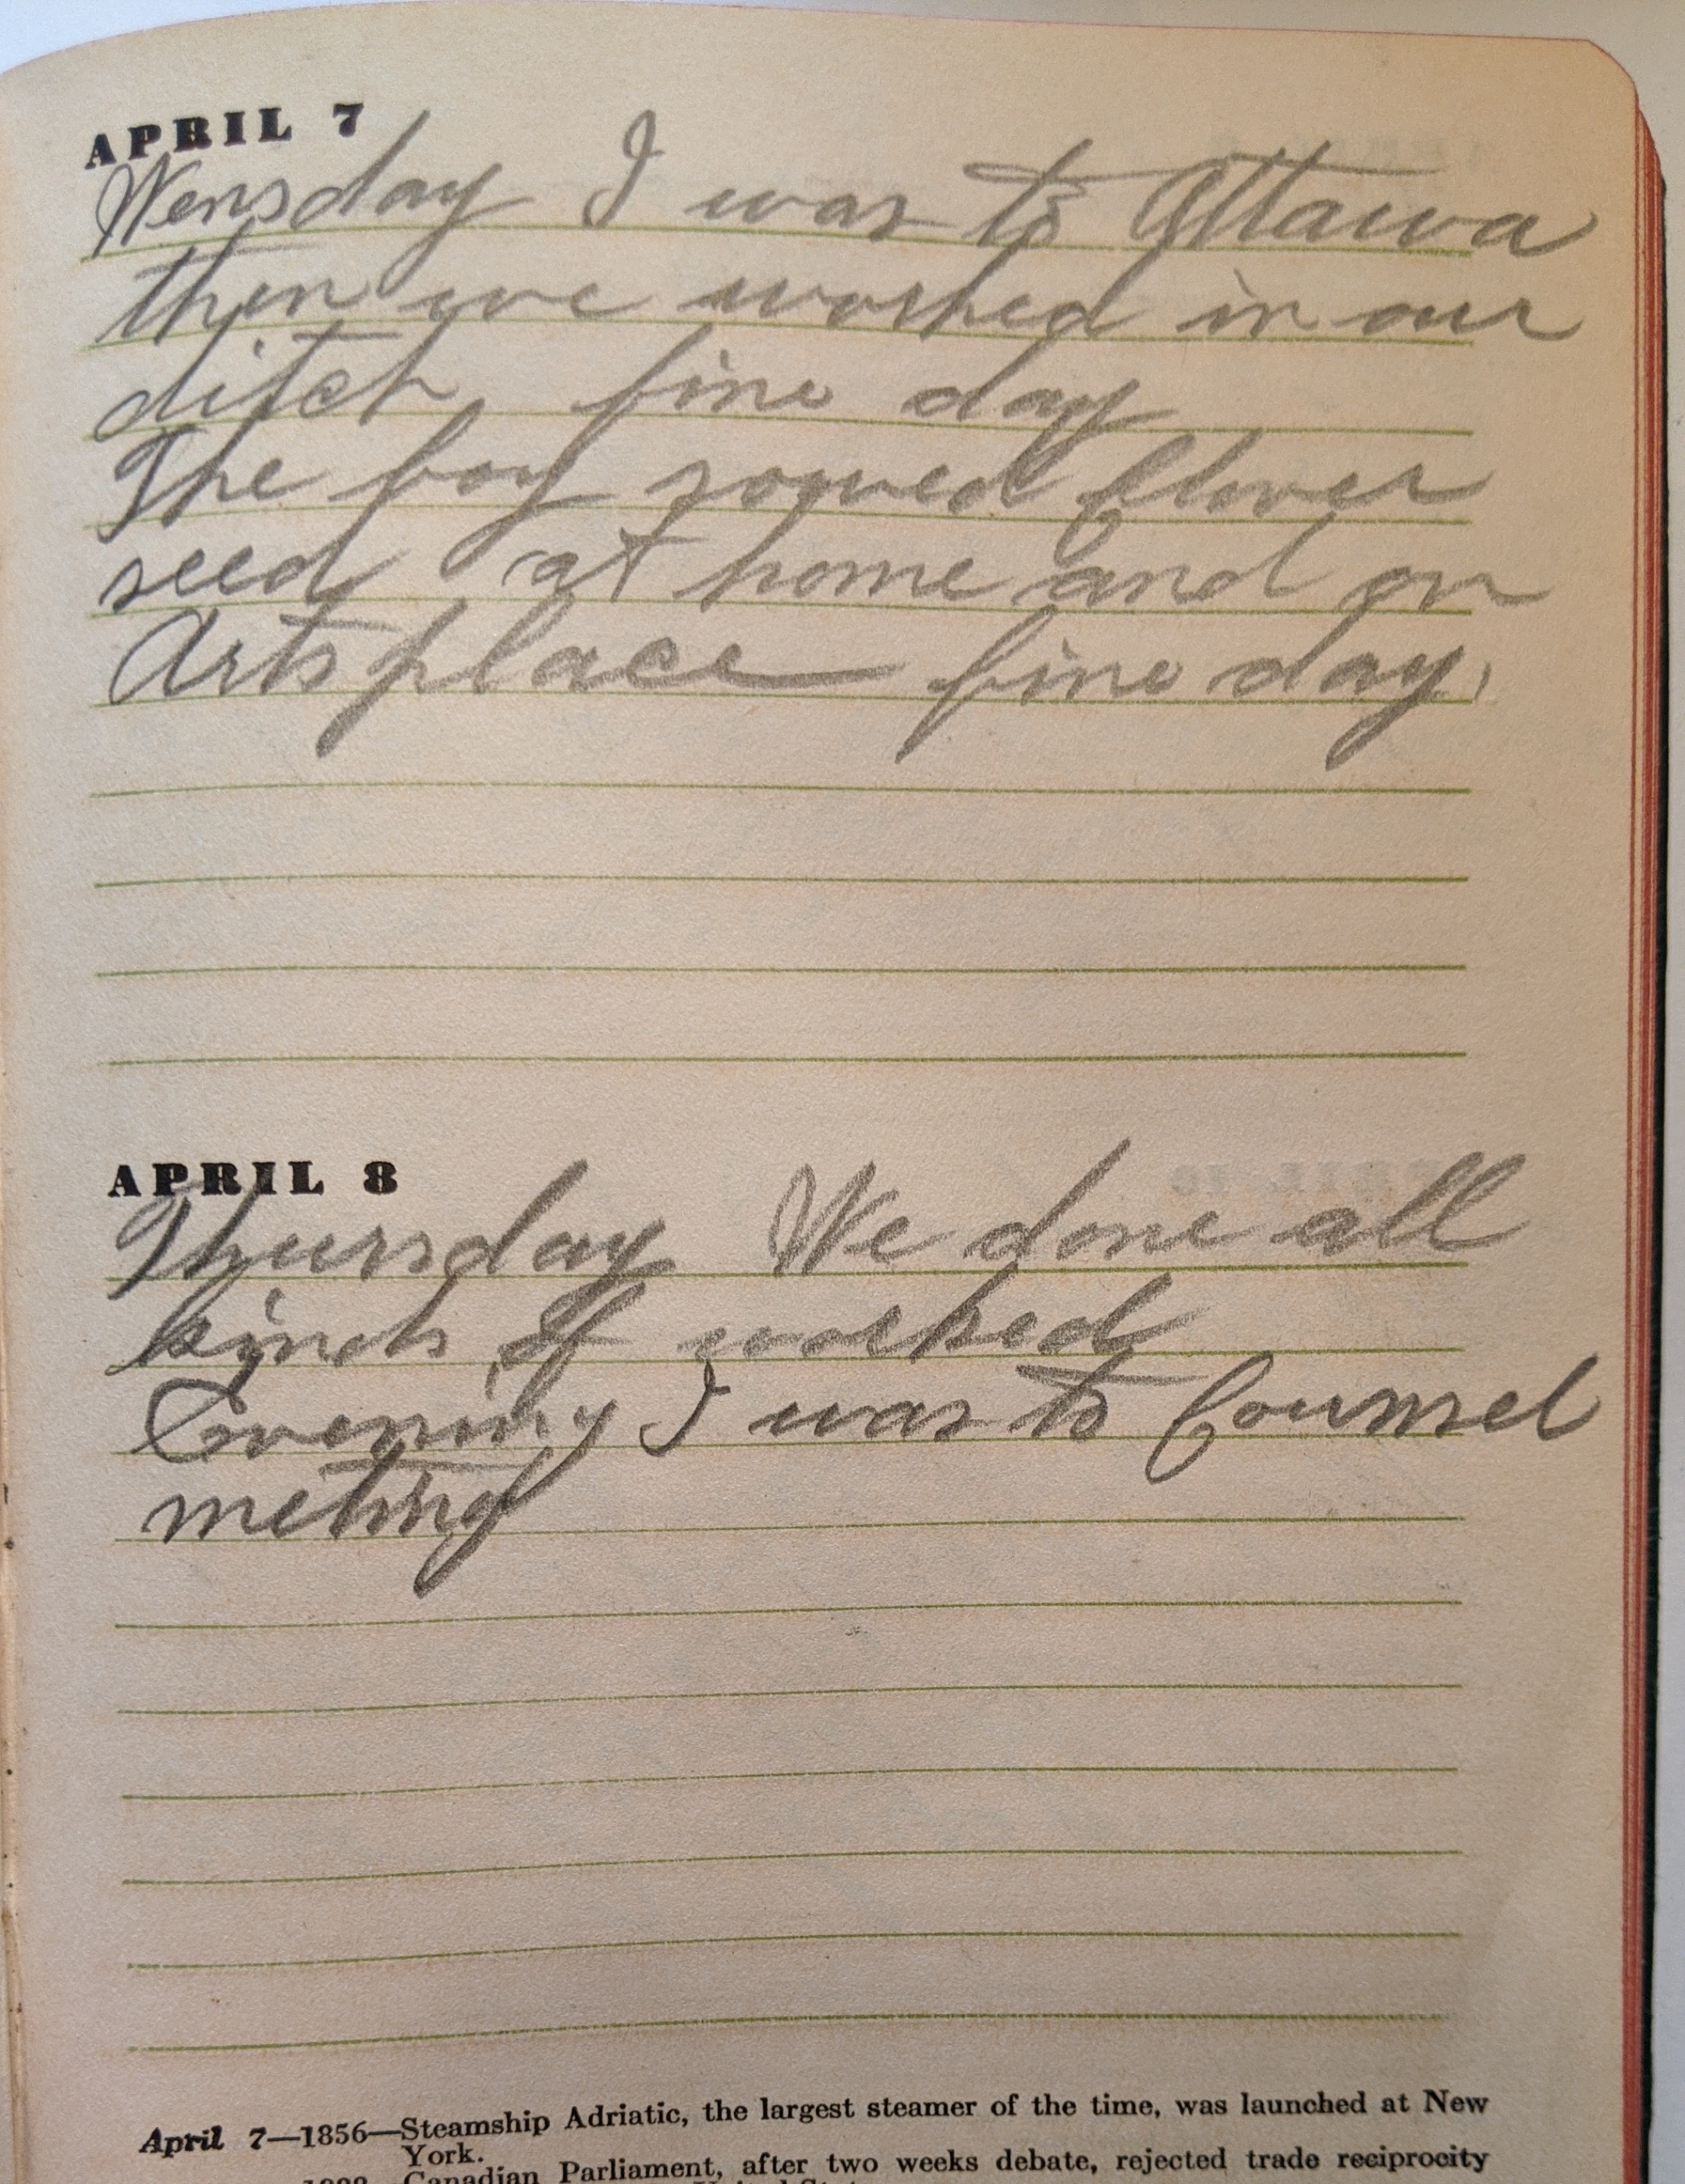 APRIL 7
Wensday I was to Ottawa
then we worked in our
ditch fine day
The boy sowed Clover
seed at home and on
Arts place fine day,
APRIL 8
Thursday We done all
kinds of worked
Evening I was to Counsel
meting
April 7—1856—Steamship Adriatic, the largest steamer of the time, was launched at New
York.
Canadian Parliament, after two weeks debate, rejected trade reciprocity